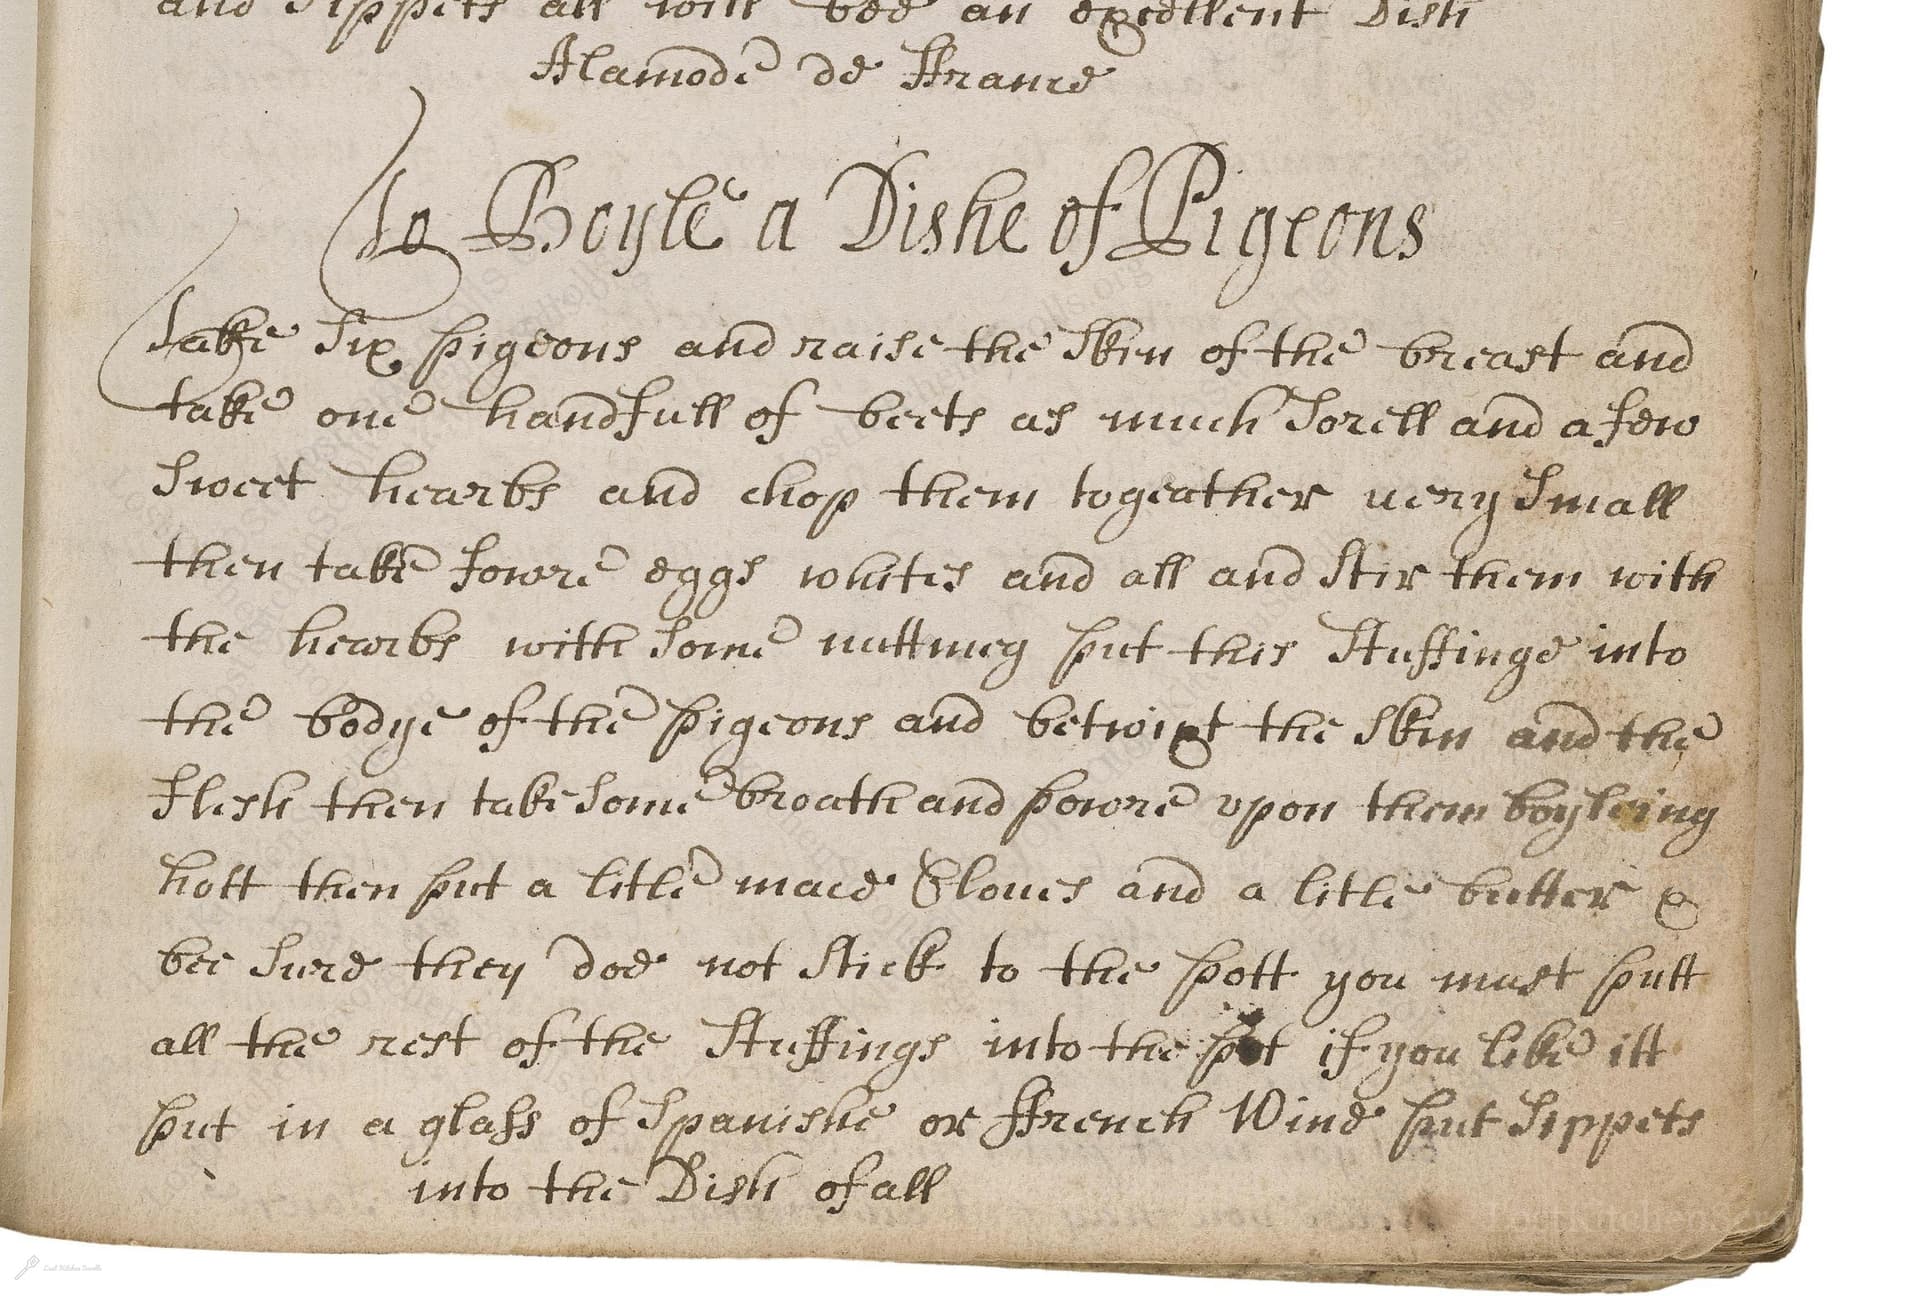 and Sippets all will bee an excellent Dish
Alamode de ffrance
To Boyle a Dishe of Pigeons
Take Six pigeons and raise the Skin of the breast and
take one handfull of beets as much Sorell and a few
Sweet hearbs and chop them togeather uery Small
then take fowre eggs whites and all and Stir them with
the hearbs with Some nuttmeg put this Stuffinge into
the bodye of the pigeons and betwixt the Skin and the
flesh then take Some broath and powre vpon them boyleing
hott then put a litle mace Cloues and a litle butter &
bee Sure they doe not Stick to the pott you must putt
all the rest of the Stuffings into the pot if you like itt
put in a glass of Spanishe or ffrench Wine put Sippets
into the Dish of all
Lost Kitchen Scrolls